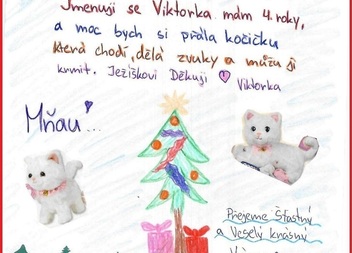 Jmenuji se Viktorka mám 4. roky,
a moc bych si přála kočičku
která chodí, dělá zvuky a můžu ji
krmit. Ježíškovi Děkuji Viktorka
Mňau!...
Přejeme Šťastný
a Veselý krásný